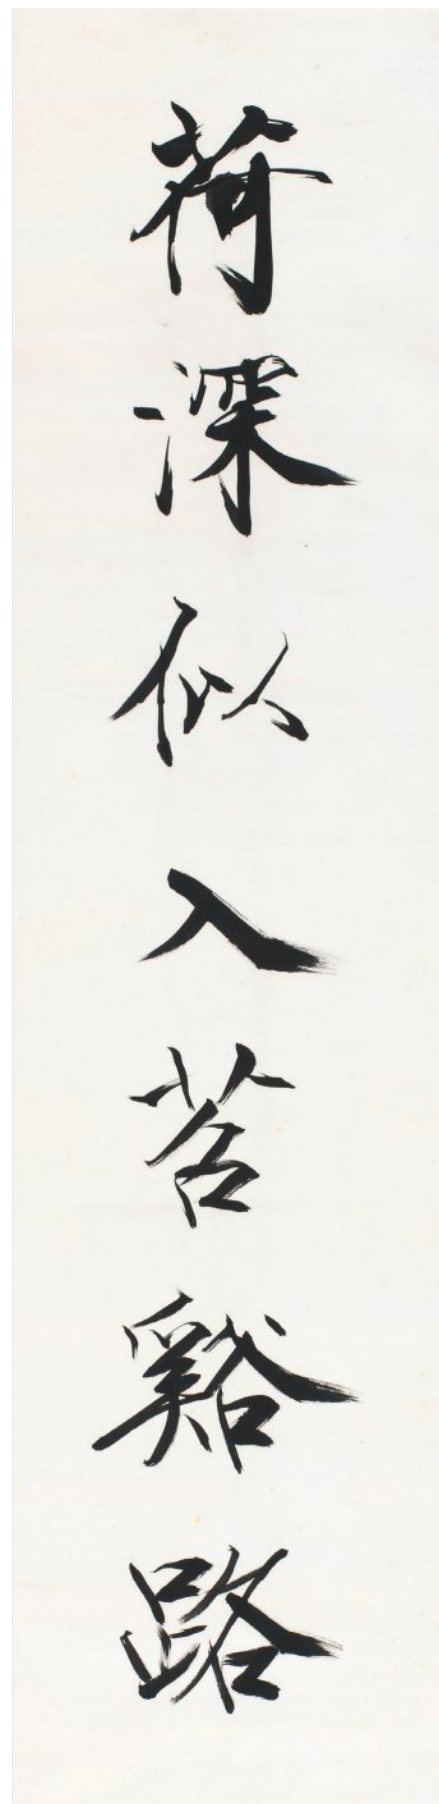 荷深似入苕谿路